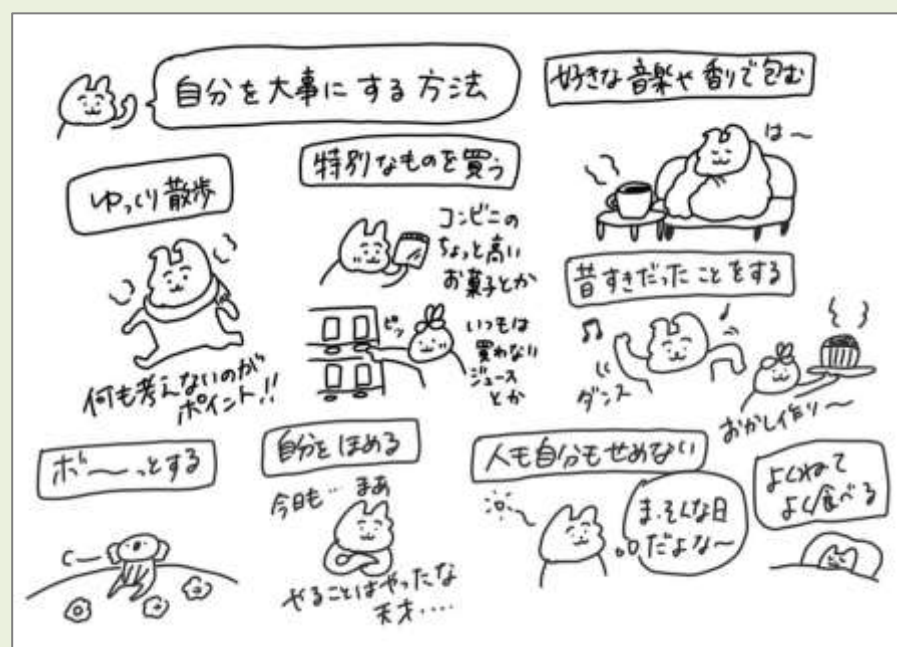 自分を大事にする方法
好きな音楽や香りで包む
は〜
ゆっくり散歩
何も考えないのが
ポイント!!
特別なものを買う
コンビニの
ちょっと高い
お菓子とか
ピッ
いつもは
買わない
ジュース
とか
昔すきだったことをする
ダンス
おかし作り〜
ボ〜〜っとする
自分をほめる
今日も…まあ
やることはやったな
天才‥‥
人も自分もせめない
ま、そんな日
だよな〜
よくねて
よく食べる